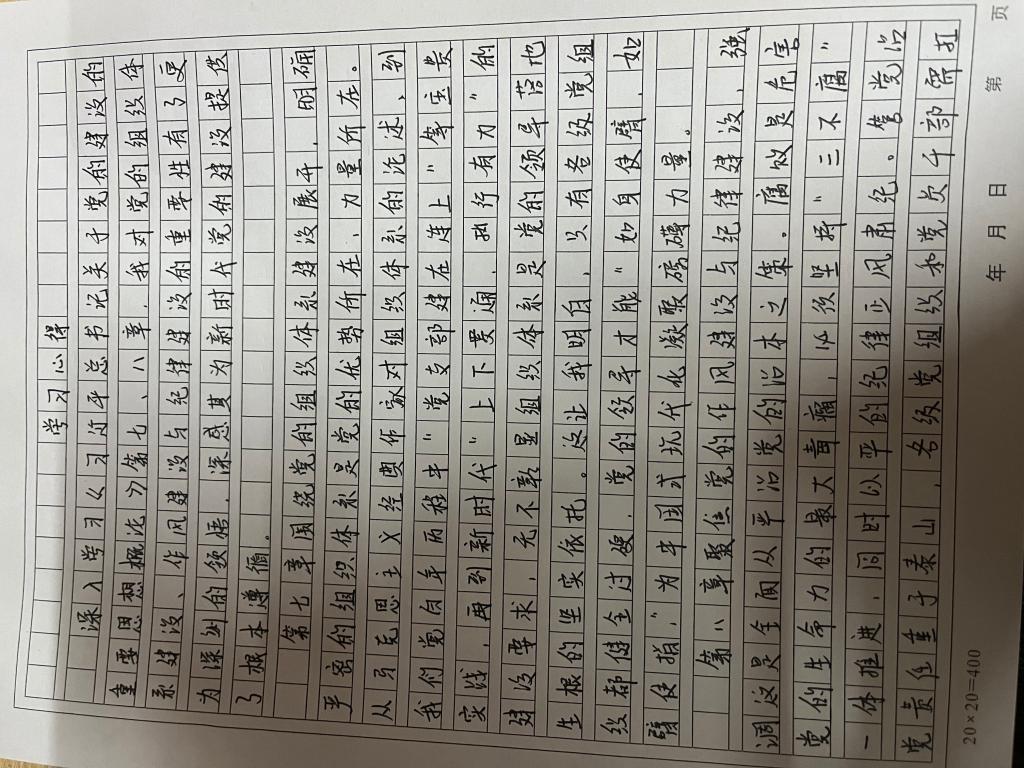 学习心得
深入学习《习近平总书记关于党的建设的
重要思想概论》第七、八章，我对党的组织体
系建设、作风建设与纪律建设的重要性有了更
为深刻的领悟，深感其为新时代党的建设提供
了根本遵循。
第七章围绕党的组织体系建设展开，明确
严密的组织体系是党的优势所在、力量所在。
从马克思主义经典作家对组织体系的论述，到
我们党百年历程中“党支部建在连上”等宝贵
实践，再到新时代“上下贯通，执行有力”的
建设要求，无不彰显组织体系是党的领导落地
生根的坚实依托。这让我明白，只有各级党组
织都健全过硬，党的领导才能“如身使臂，如
臂使指，”为中国式现代化凝聚磅礴力量。
第八章聚焦党的作风建设与纪律建设，强
调这是全面从严治党的治本之策。腐败是危害
党的生命力的最大毒瘤，必须坚持“三不腐”
一体推进，同时以严的纪律正风肃纪。管党治
党责任重于泰山，各级党组织和党员干部需扛
20×20=400
年 月 日
第 页